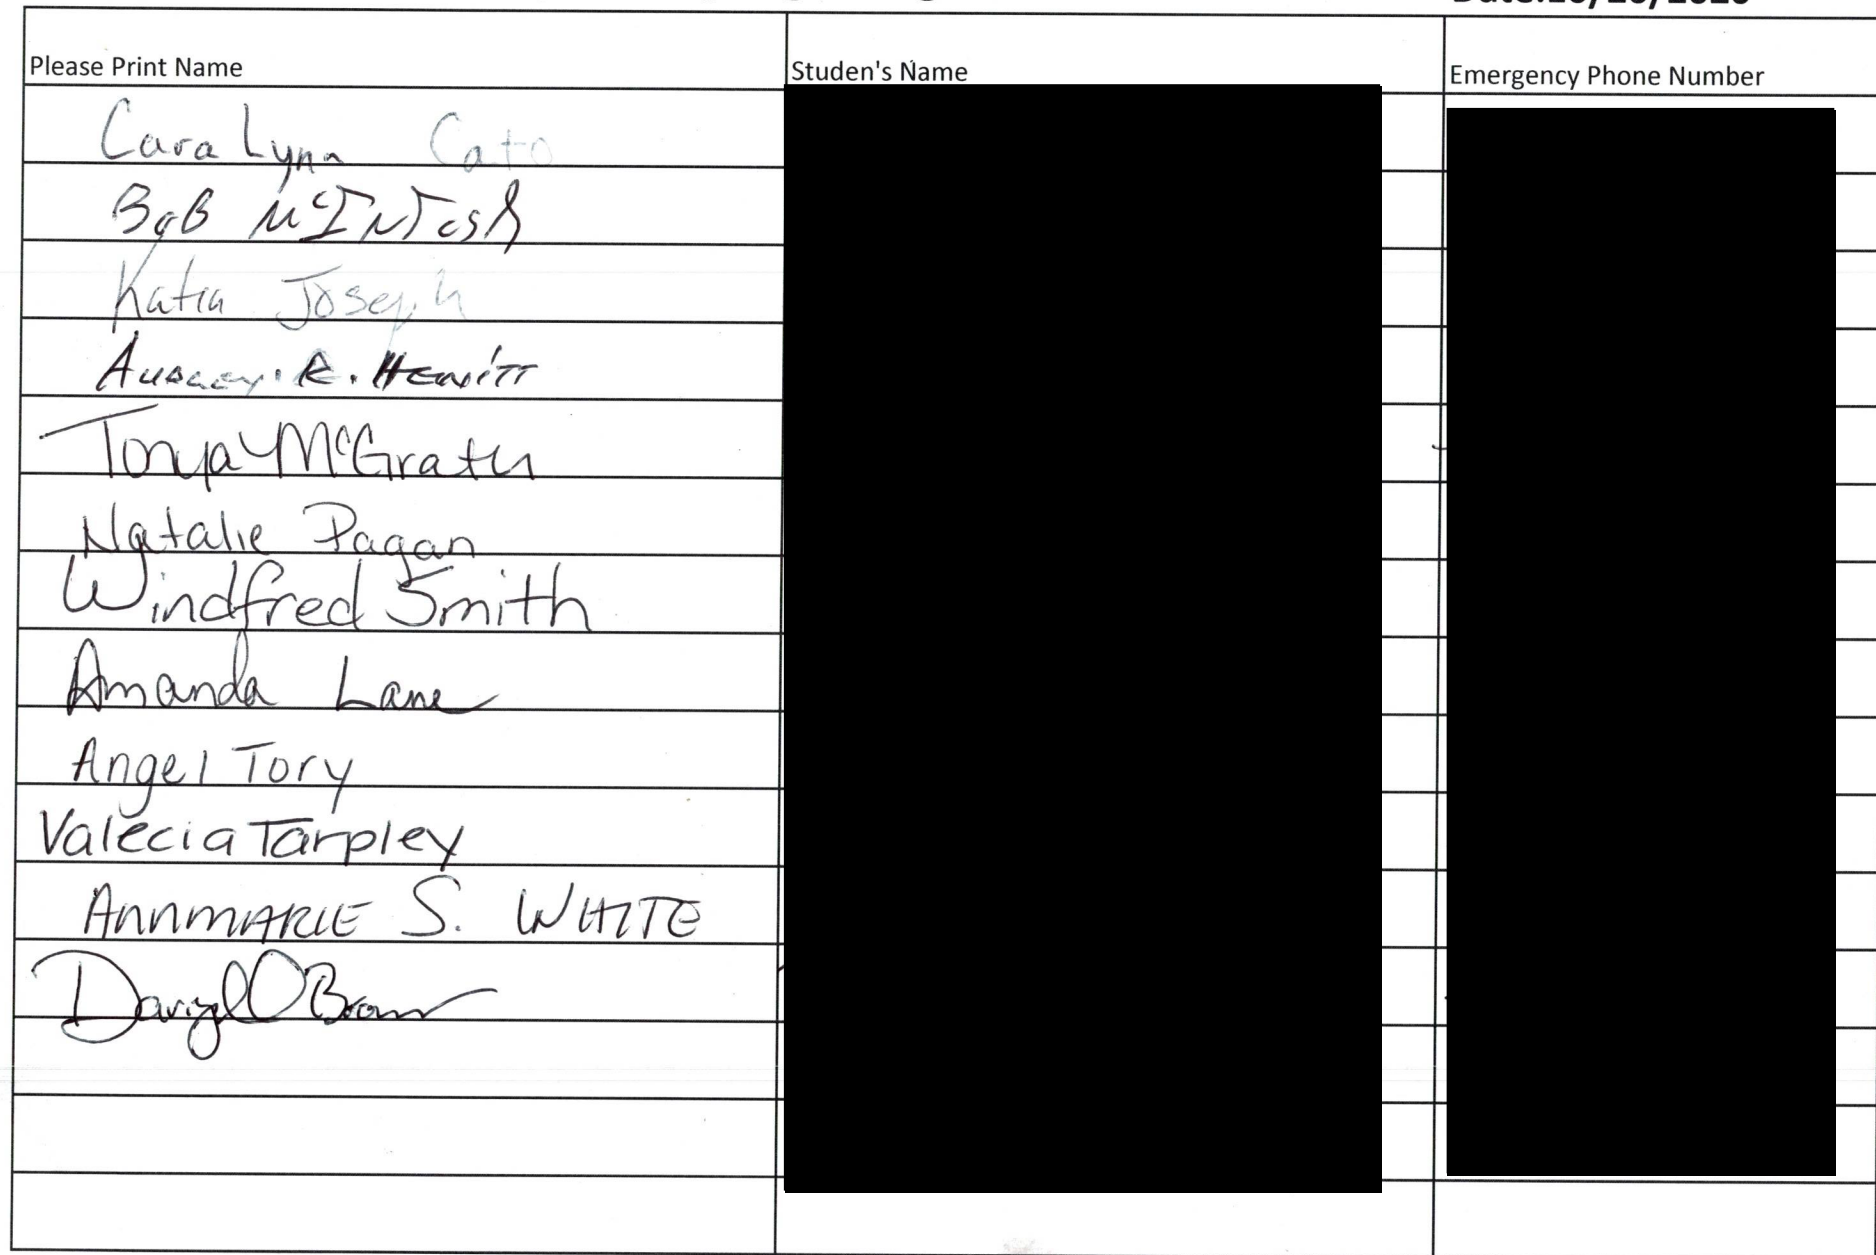 Please Print Name Studen's Name Emergency Phone Number
Cara Lynn Cato
BoB McINTosh
Katia Joseph
Aubrey. R. Hewitt
Tonya McGrath
Natalie Pagan
Windfred Smith
Amanda Lane
Angel Tory
Valecia Tarpley
AnnMARIE S. WHITE
Darryl O Brown